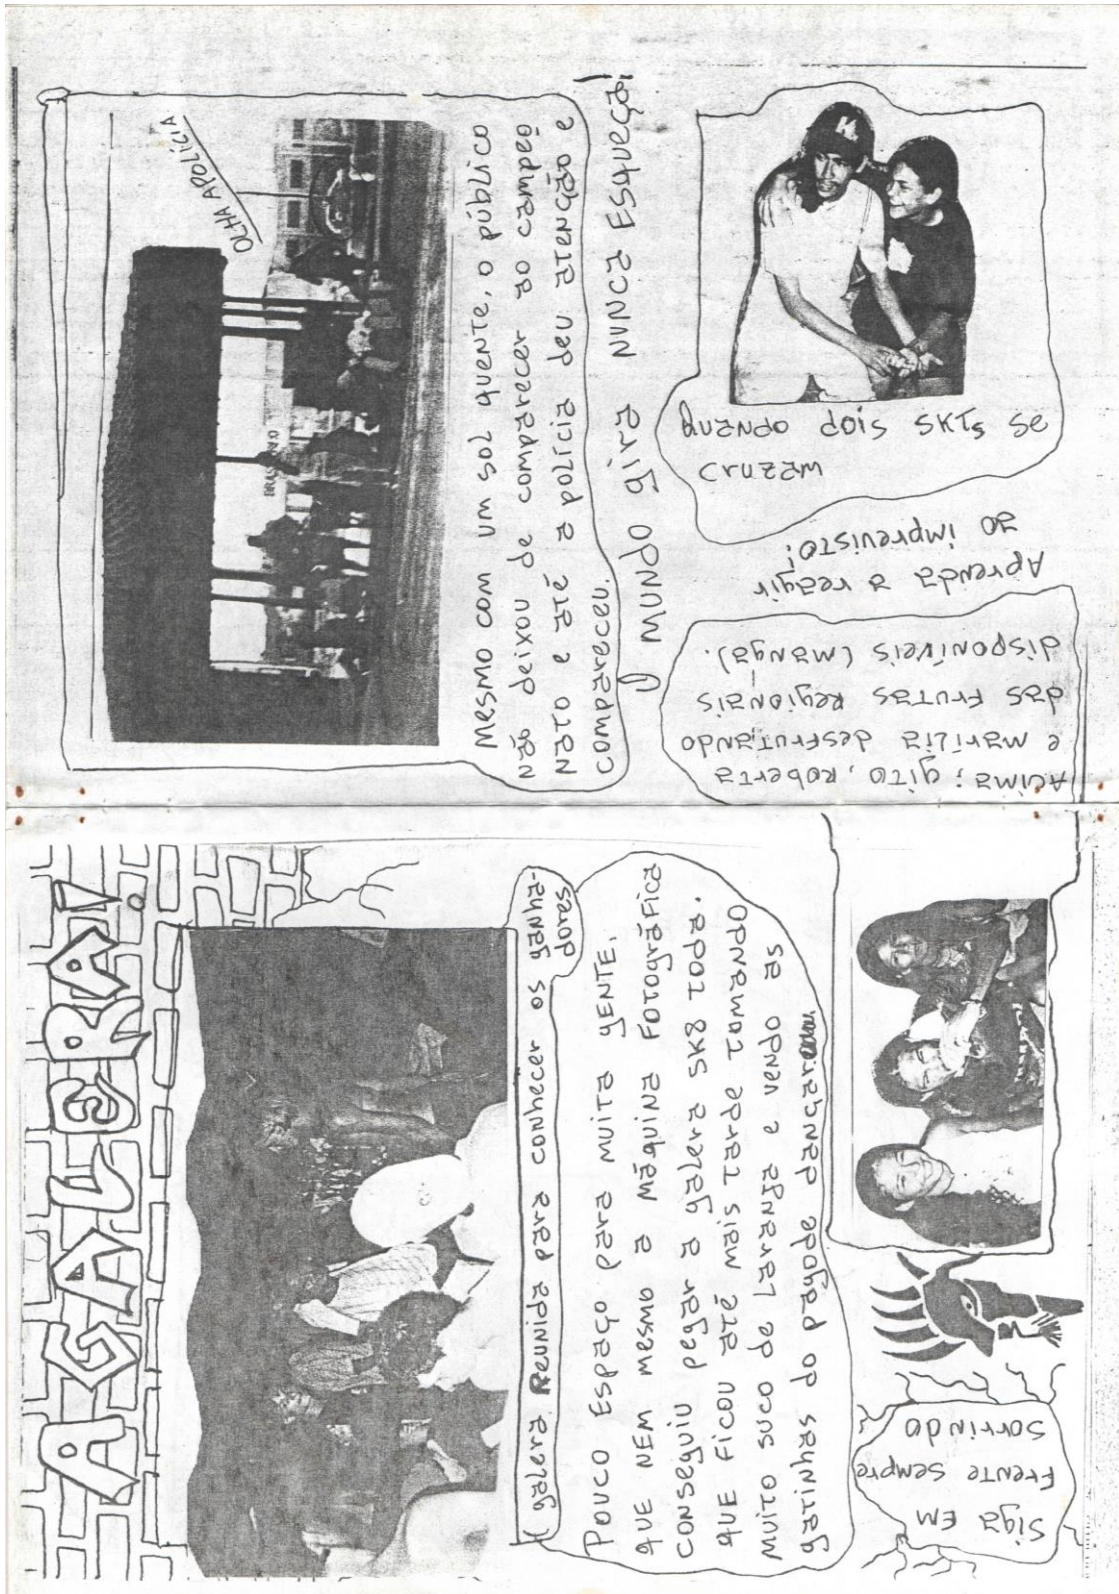 A GALERA!
galera Reunida para conhecer os ganha-
dores
Pouco Espaço para muita gente.
que nem mesmo a máquina Fotográfica
conseguiu pegar a galera SK8 toda.
que ficou até mais tarde tomando
muito suco de Laranja e vendo as
garinhas do pagode dançar.
Siga EM
Frente sempre
sorrindo
OLHA A POLÍCIA
BRASILEIRO
Mesmo com um sol quente, o público
não deixou de comparecer ao campeo
nato e até a polícia deu atenção e
compareceu.
O mundo gira nunca Esqueça!
Quando dois SKTs se
cruzam
Aprenda a reagir
ao imprevisto!
Acima: gito, Roberta
e marília desfrutando
das Frutas Regionais
disponíveis (manga).